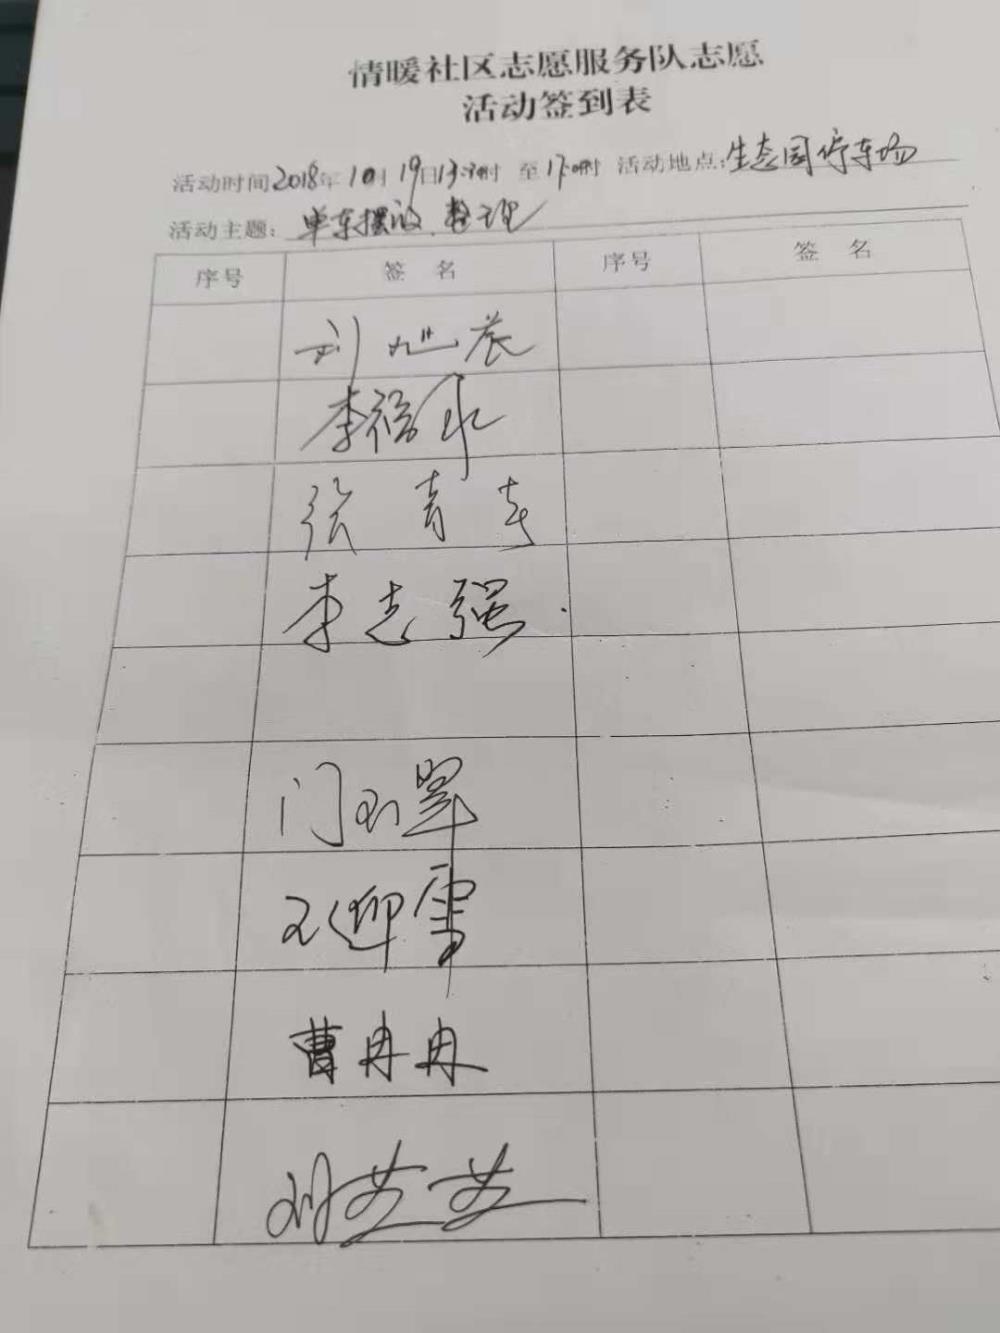 情暖社区志愿服务队志愿
活动签到表
活动时间2018年10月19日13:30时 至17:00时 活动地点:生态园停车场
活动主题: 单车摆放、整理
序号 签 名 序号 签 名
刘
李福永
张青
李志强
门
王迎雪
曹冉冉
刘芸芸